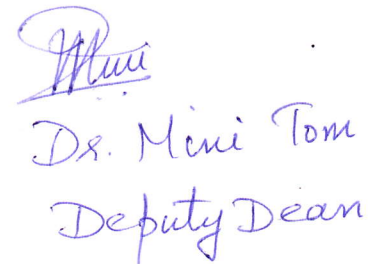 Mini
Dr. Mini Tom
Deputy Dean